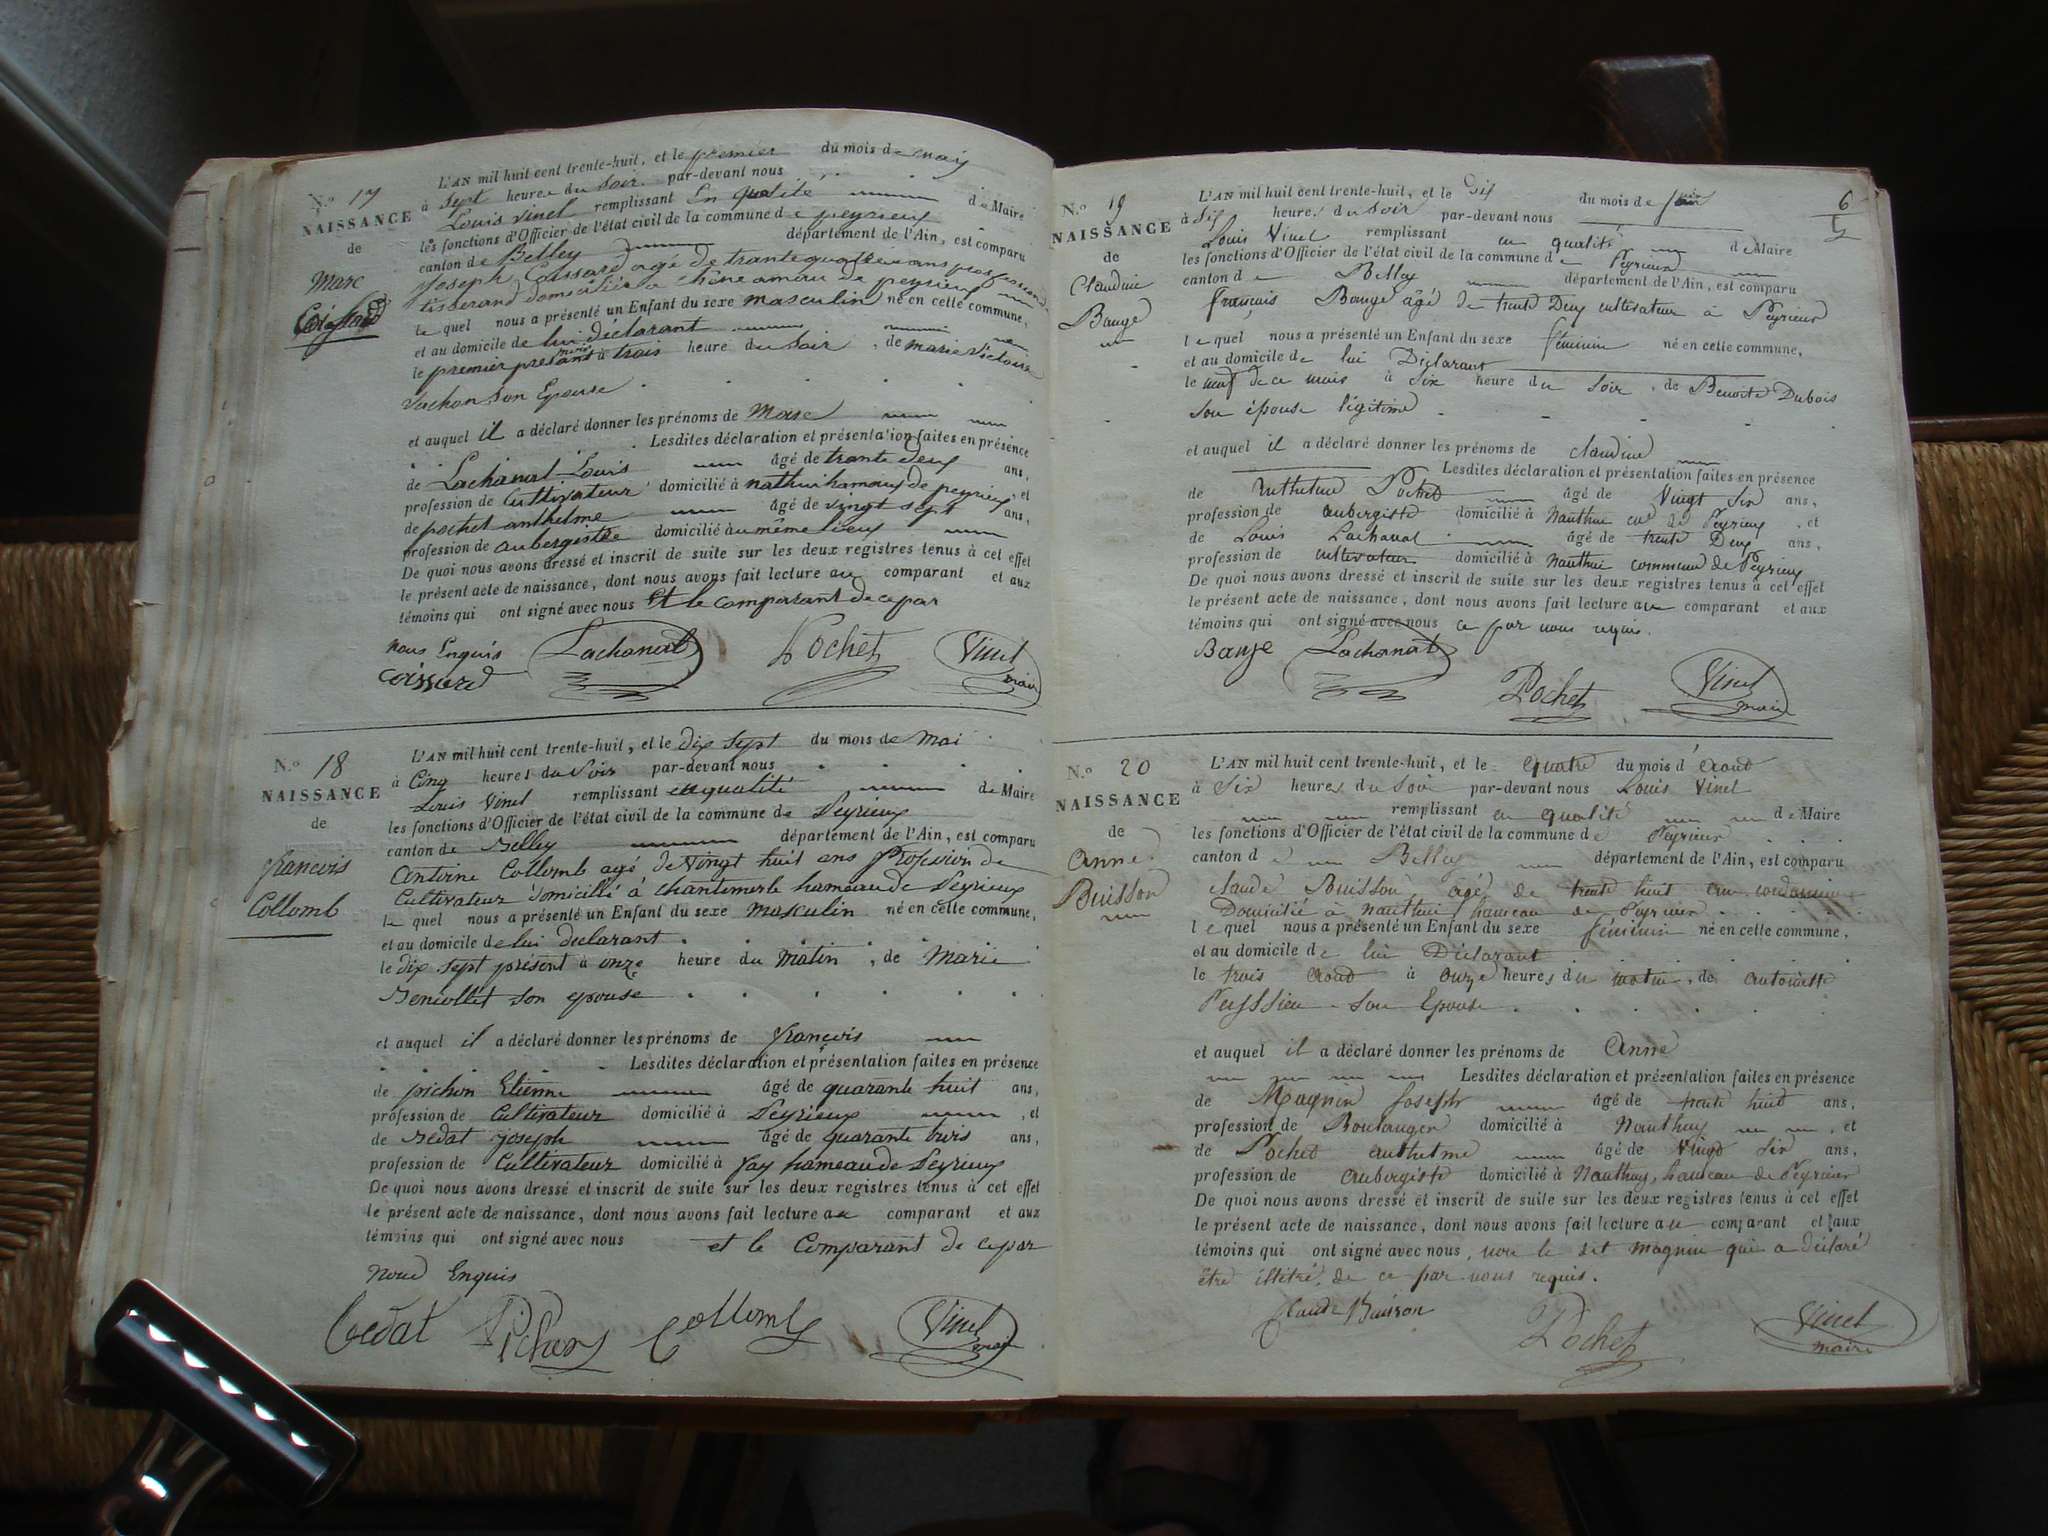 N.º 17
NAISSANCE
de
Marc
Coissard
L'AN mil huit cent trente-huit, et le premier du mois de may
à sept heures du soir par-devant nous
Louis Vinel remplissant en qualité de Maire
les fonctions d'Officier de l'état civil de la commune de peyrieux
canton de Belley département de l'Ain, est comparu
joseph Coissard agé de trante quattre ans profession de
tisserand domicilié a hameau de peyrieux
le quel nous a présenté un Enfant du sexe masculin né en cette commune,
et au domicile de lui déclarant
le premier present mois à trois heure du soir, de marie victoire
vachon son Epouse
et auquel il a déclaré donner les prénoms de Marc
Lesdites déclaration et présentation faites en présence
de Lachanal Louis âgé de trante deux ans,
profession de cultivateur domicilié à nathui hamaux de peyrieux, et
de pochet anthelme âgé de vingt sept ans,
profession de aubergiste domicilié au même lieux
De quoi nous avons dressé et inscrit de suite sur les deux registres tenus à cet effet
le présent acte de naissance, dont nous avons fait lecture au comparant et aux
témoins qui ont signé avec nous Et le comparant de ce par
nous Enquis
coissard Lachanal Pochet Vinel maire
N.º 18
NAISSANCE
de
françois
Collomb
L'AN mil huit cent trente-huit, et le dix sept du mois de mai
à Cinq heures du Soir par-devant nous
Louis Vinel remplissant en qualité de Maire
les fonctions d'Officier de l'état civil de la commune de Peyrieux
canton de Belley département de l'Ain, est comparu
Antoine Collomb agé de vingt huit ans Profession de
Cultivateur domicilié à chantemerle hameau de Peyrieux
le quel nous a présenté un Enfant du sexe masculin né en cette commune,
et au domicile de lui declarant
le dix sept présent à onze heure du matin, de Marie
son epouse
et auquel il a déclaré donner les prénoms de françois
Lesdites déclaration et présentation faites en présence
de pichon Etienne âgé de quarante huit ans,
profession de Cultivateur domicilié à Peyrieux, et
de Bedat joseph âgé de quarante trois ans,
profession de Cultivateur domicilié à fay hameau de Peyrieux
De quoi nous avons dressé et inscrit de suite sur les deux registres tenus à cet effet
le présent acte de naissance, dont nous avons fait lecture au comparant et aux
témoins qui ont signé avec nous et le Comparant de ce par
nous Enquis
bedat Pichon Collomb Vinel maire
6
N.º 19
NAISSANCE
de
Claudine
Bauge
L'AN mil huit cent trente-huit, et le dix du mois de juin
à six heures du soir par-devant nous
Louis Vinel remplissant en qualité de Maire
les fonctions d'Officier de l'état civil de la commune de Peyrieux
canton de Belley département de l'Ain, est comparu
françois Bauge âgé de trente Deux cultivateur à Peyrieux
le quel nous a présenté un Enfant du sexe féminin né en cette commune,
et au domicile de lui Déclarant
le neuf de ce mois à six heure du soir, de Benoite Dubois
son épouse légitime
et auquel il a déclaré donner les prénoms de claudine
Lesdites déclaration et présentation faites en présence
de Anthelme Pochet âgé de Vingt Six ans,
profession de aubergiste domicilié à Nanthui cne de Peyrieux, et
de Louis Lachanal âgé de trente Deux ans,
profession de cultivateur domicilié à Nanthui commune de Peyrieux
De quoi nous avons dressé et inscrit de suite sur les deux registres tenus à cet effet
le présent acte de naissance, dont nous avons fait lecture au comparant et aux
témoins qui ont signé avec nous ce par nous requis.
Bauje Lachanal
Pochet Vinel maire
N.º 20
NAISSANCE
de
Anne
Buisson
L'AN mil huit cent trente-huit, et le quatre du mois d'Aoud
à Six heures du Soir par-devant nous Louis Vinel
remplissant en qualité de Maire
les fonctions d'Officier de l'état civil de la commune de Peyrieux
canton de Belley département de l'Ain, est comparu
claude Buisson âgé de trente huit ans
Domicilié à Nanthui hameau de Peyrieux
le quel nous a présenté un Enfant du sexe féminin né en cette commune,
et au domicile de lui Déclarant
le trois Aoud à onze heures du matin, de Antoinette
Peyssieu son Epouse
et auquel il a déclaré donner les prénoms de Anne
Lesdites déclaration et présentation faites en présence
de Magnin Joseph âgé de trente huit ans,
profession de Boulanger domicilié à Nanthuy, et
de Pochet anthelme âgé de Vingt Six ans,
profession de Aubergiste domicilié à Nanthuy, hameau de Peyrieux
De quoi nous avons dressé et inscrit de suite sur les deux registres tenus à cet effet
le présent acte de naissance, dont nous avons fait lecture au comparant et aux
témoins qui ont signé avec nous, non le dit magnin qui a déclaré
être illitré, de ce par nous requis.
Claude Buisson Pochet Vinel maire